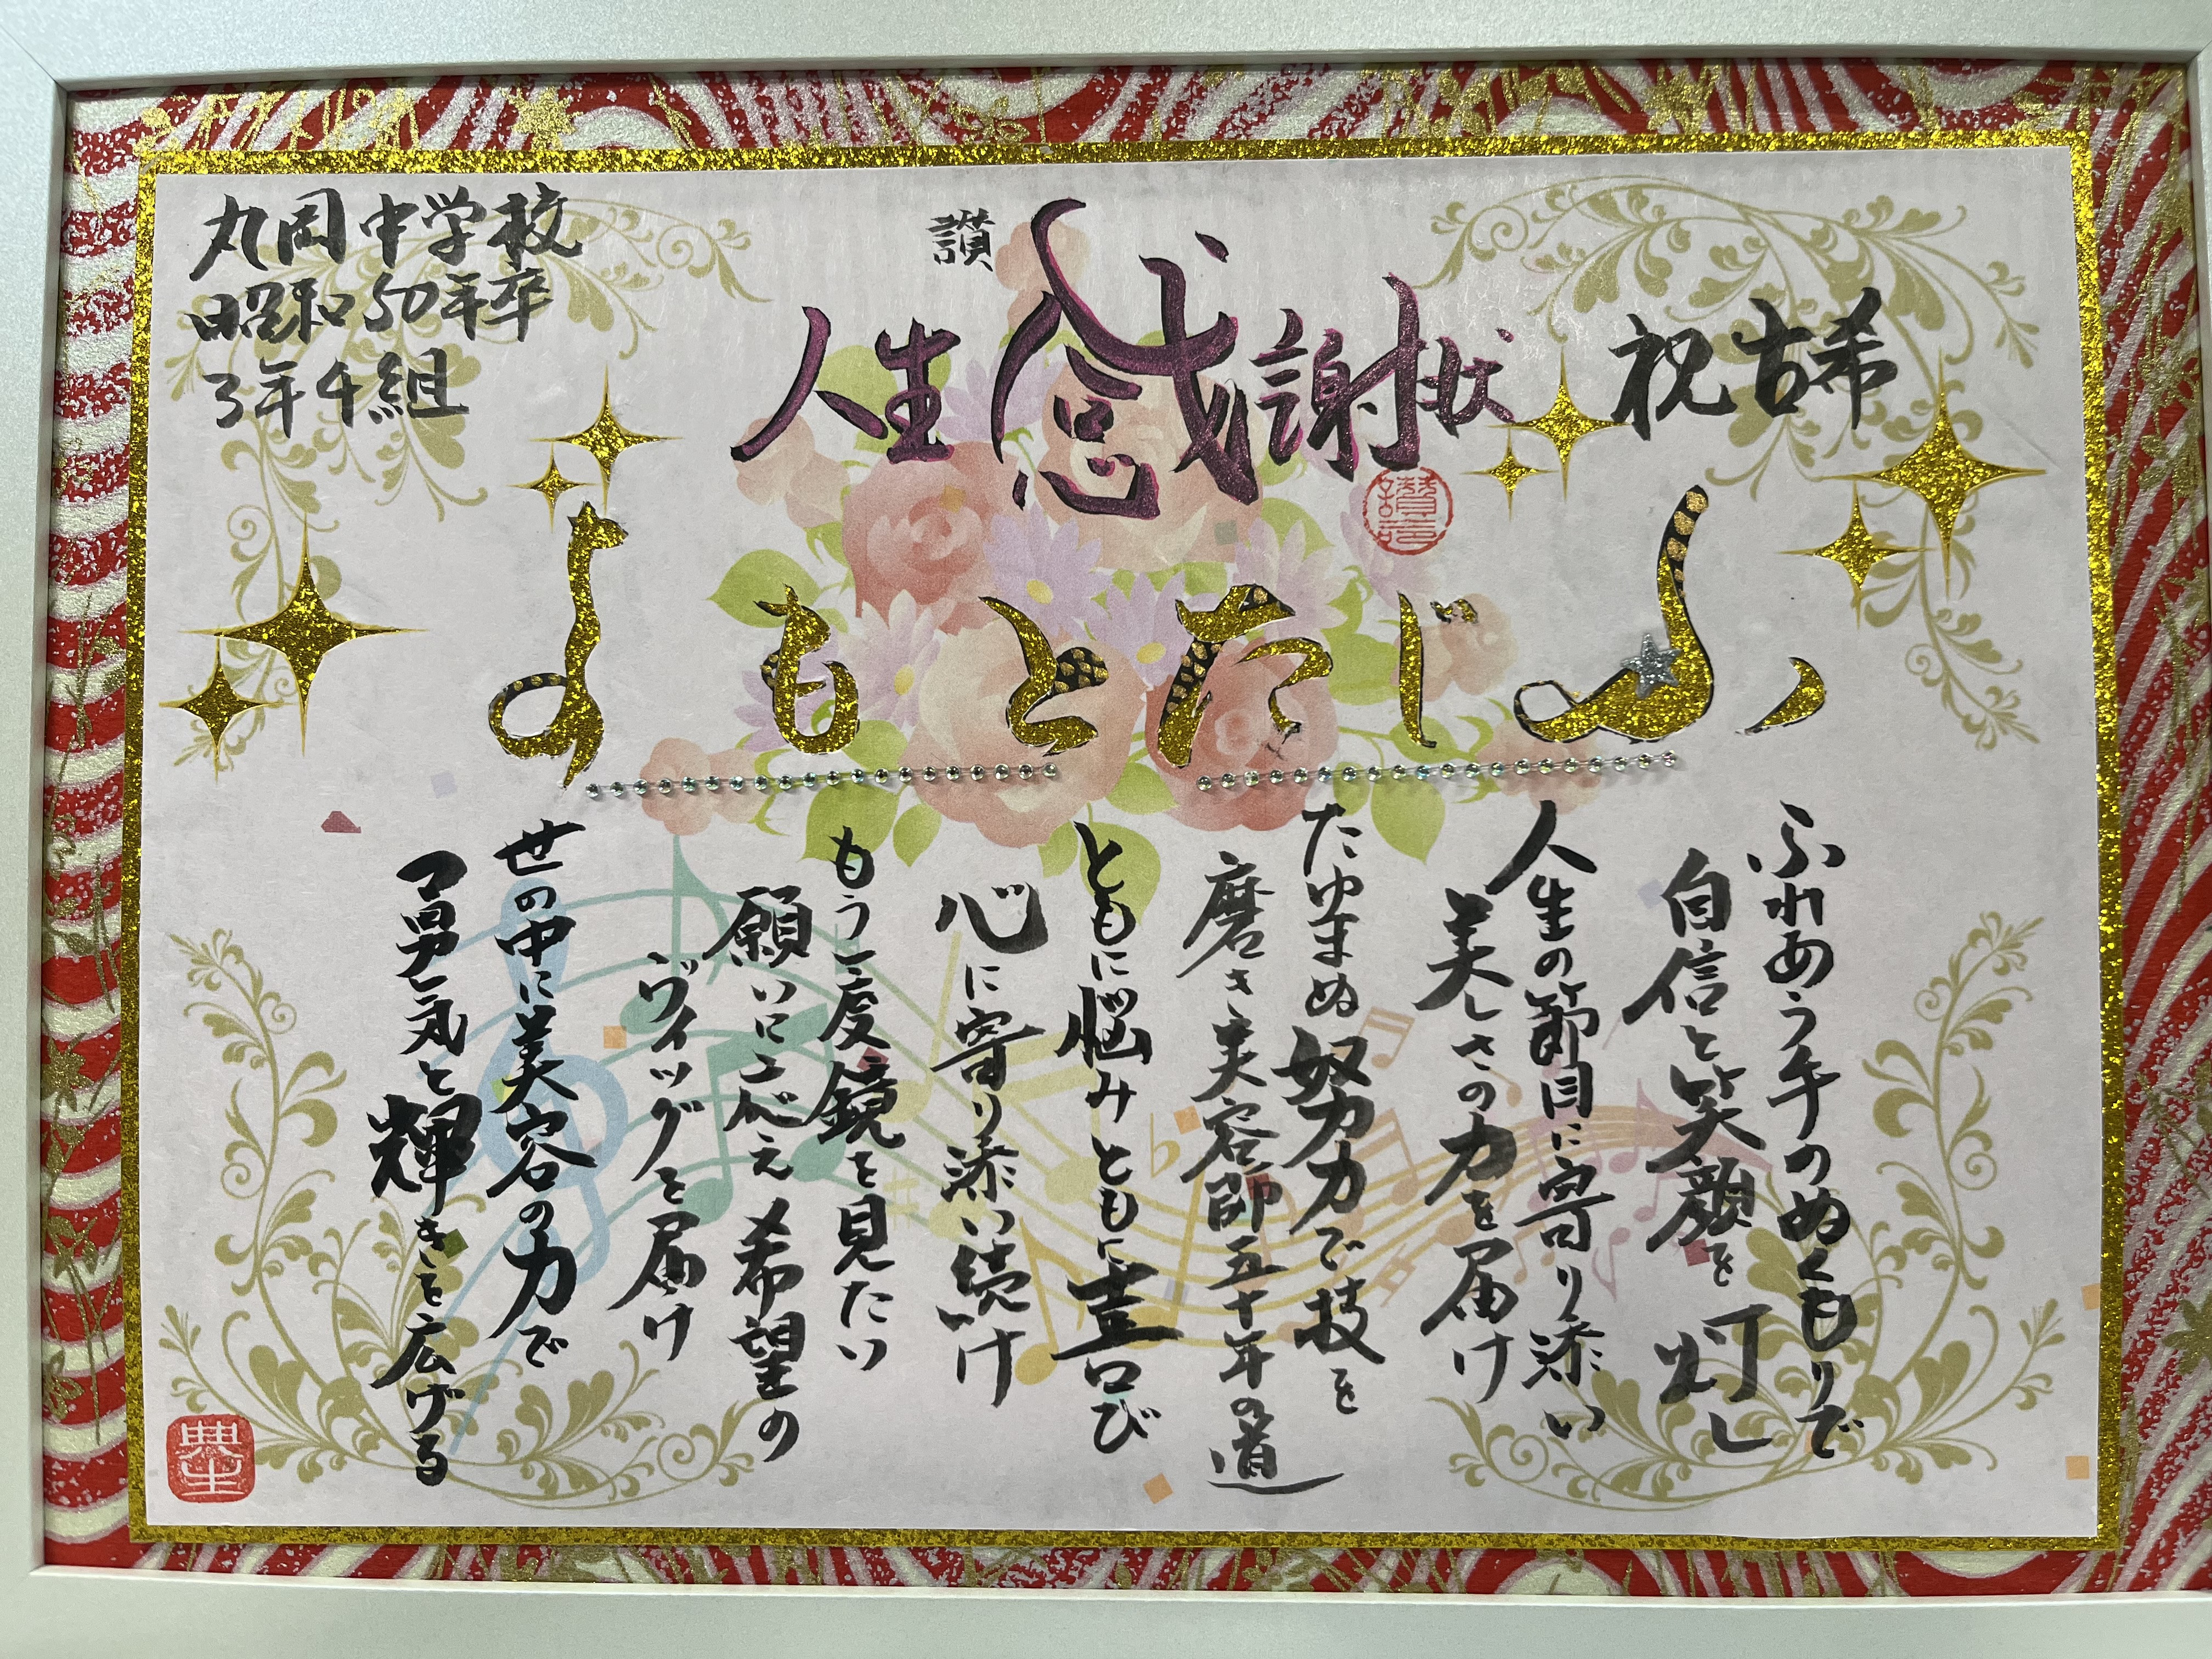 丸岡中学校
昭和50年卒
3年4組
讃
人生感謝状
祝古希
ふじたともよ
ふれあう手のぬくもりで
自信と笑顔を灯し
人生の節目に寄り添い
美しさの力を届け
たゆまぬ努力で技を
磨き美容師五十年の道
ともに悩みともに喜び
心に寄り添い続け
もう一度鏡を見たい
願いに応え希望の
ウィッグを届け
世の中に美容の力で
勇気と輝きを広げる